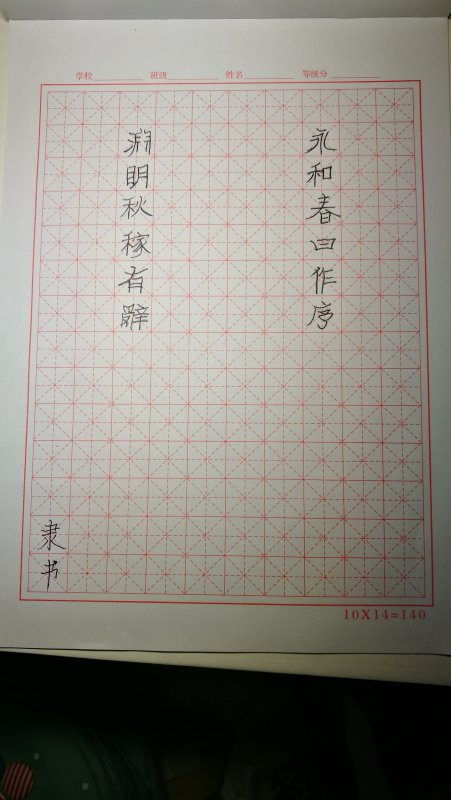 学校 班级 姓名 等级分
永和春日作序
渊明秋稼有辞
隶书
10X14=140